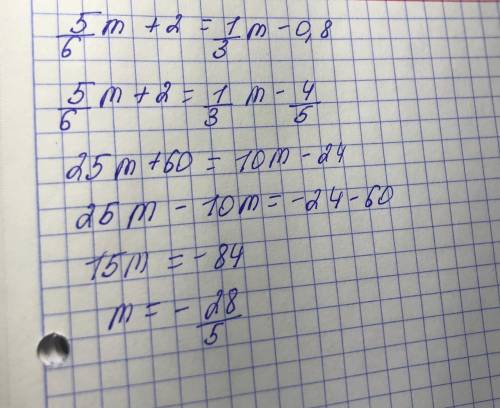 5/6 m + 2 = 1/3 m - 0,8
5/6 m + 2 = 1/3 m - 4/5
25m + 60 = 10m - 24
25m - 10m = -24 - 60
15m = -84
m = - 28/5